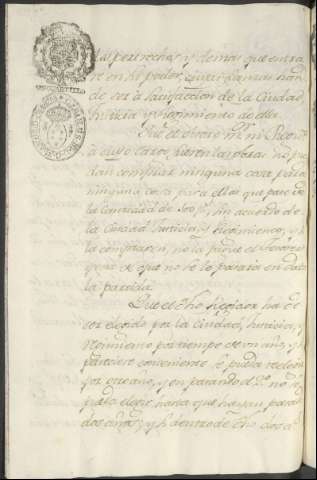 las pertrechas, y demas que entra
re en su poder, cuias fianzas han
de ser à satisfaccion de la Ciudad,
Justicia y regimiento de ella.
Que el Obrero mr. ni
à cuyo cargo las obras no pue
dan comprar ninguna cosa para
ninguna para ellas que pase de
la Cantidad de sin acuerdo de
la Ciudad Justicia, y regimiento, y si
la comprasen, no la pague el
pena de que no se le pasara en data
la partida.
Que el dho Regidor ha de
ser elegido por la Ciudad, Justicia, y
regimiento por tiempo de un año, y si
pareciere conveniente se pueda reelegir
por otro año, y en pasando el 2º no se
pueda elegir hasta que hayan pasado
dos años, y si dentro de dho dos a